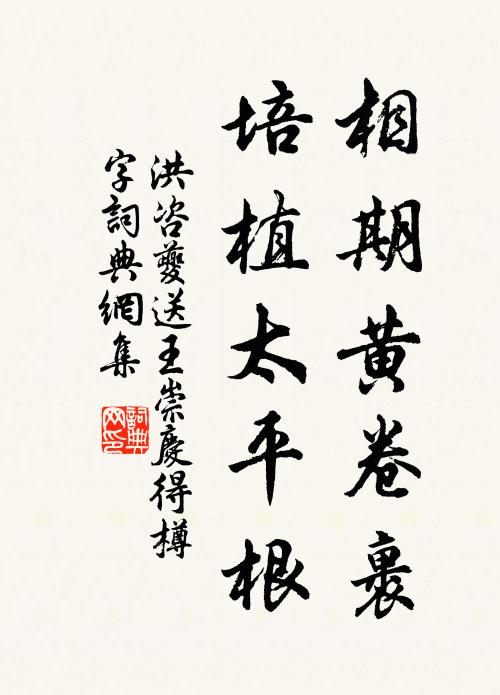 相期黄卷裹
培植太平根
洪咨夔送王崇慶得樽
字詞典網集
詞典
网印